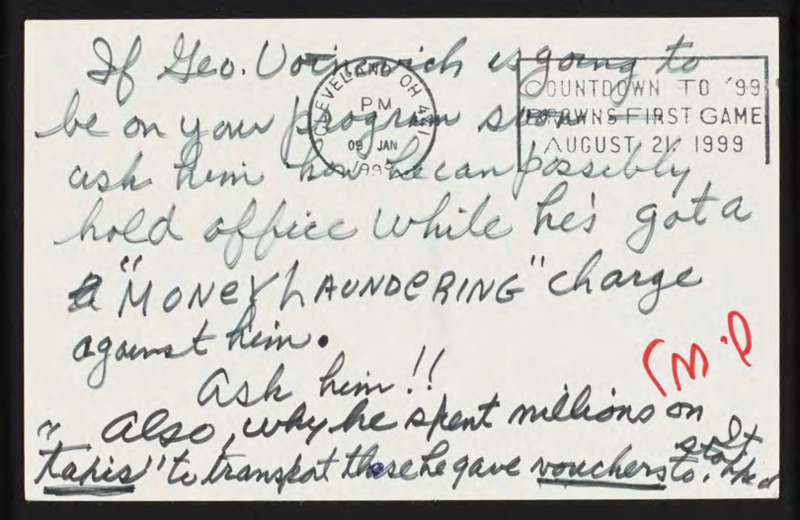 If Geo. Voinovich is going to
be on your program soon
ask him how he can possibly
hold office while he's got a
a "MONEY LAUNDERING" charge
against him.
Ask him!!
" Also, why he spent millions on
taxis" to transport those he gave vouchers to. It
stopped
CLEVELAND OH 441
PM
09 JAN
1999
COUNTDOWN TO '99
BROWNS FIRST GAME
AUGUST 21, 1999